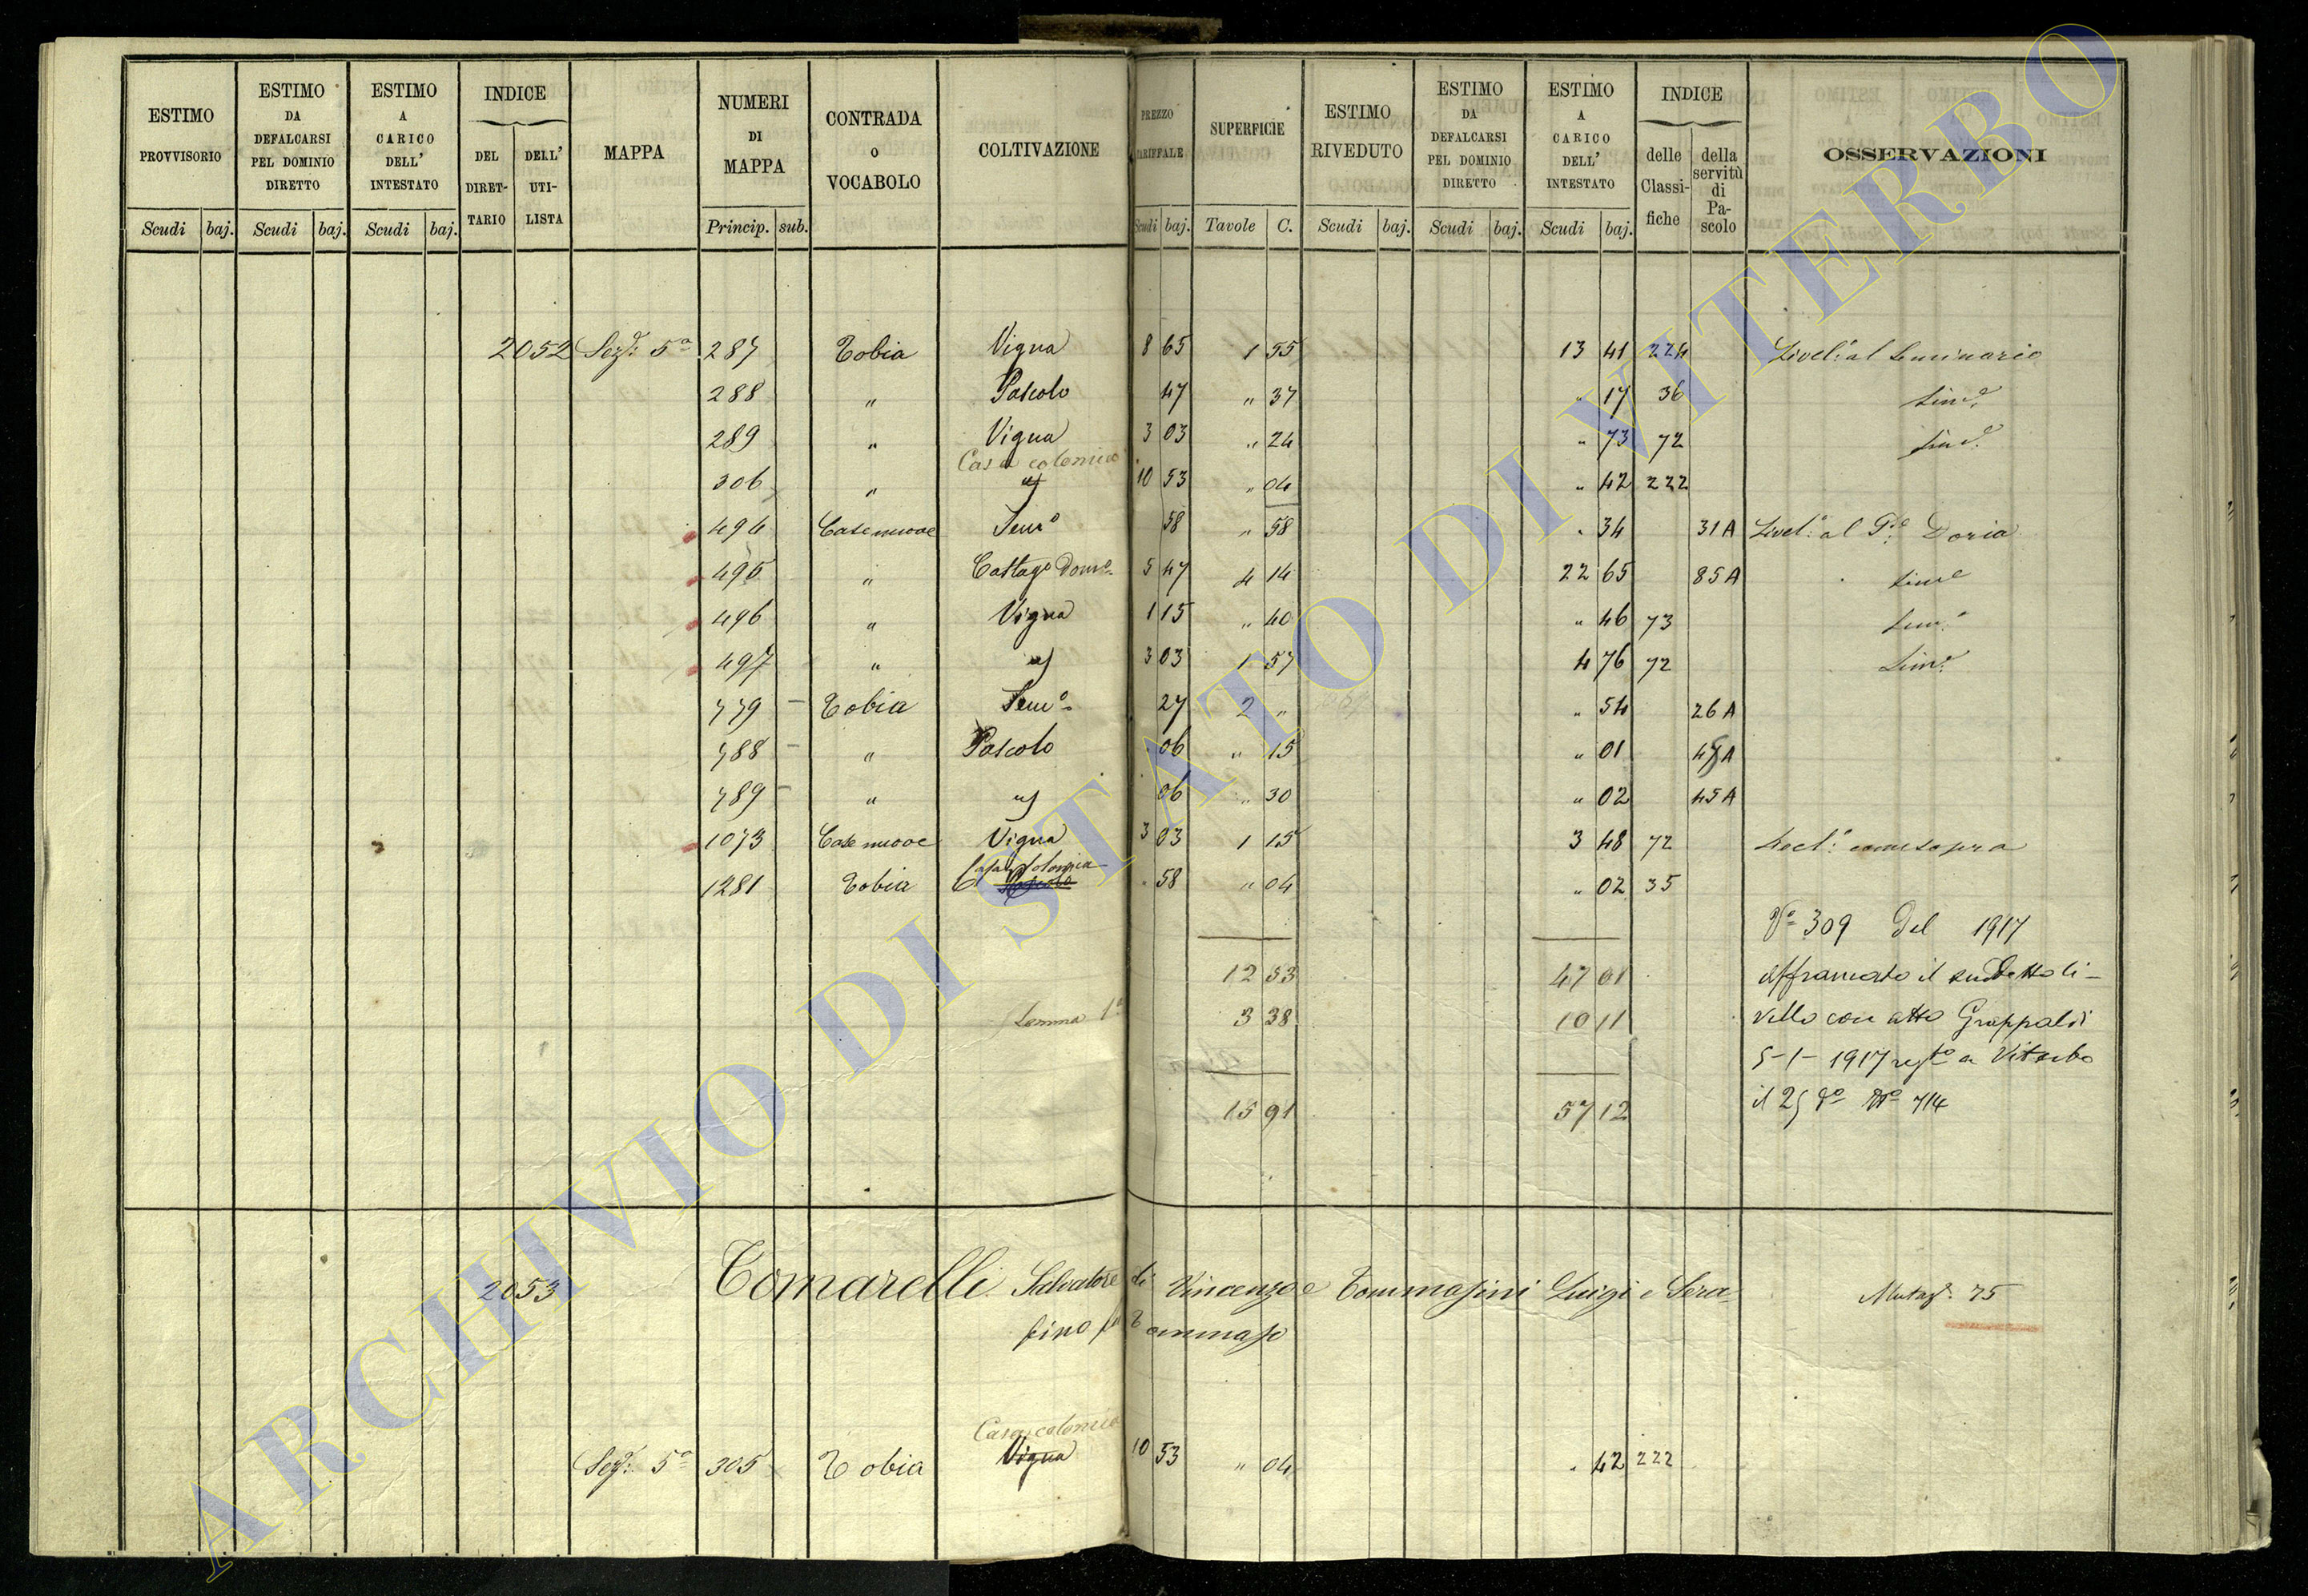 ESTIMO PROVVISORIO | ESTIMO DA DEFALCARSI PEL DOMINIO DIRETTO | ESTIMO A CARICO DELL' INTESTATO | INDICE DEL DIRET-TARIO | DELL' UTI-LISTA | MAPPA | NUMERI DI MAPPA | CONTRADA O VOCABOLO | COLTIVAZIONE | PREZZO TARIFFALE | SUPERFICIE | ESTIMO RIVEDUTO | ESTIMO DA DEFALCARSI PEL DOMINIO DIRETTO | ESTIMO A CARICO DELL' INTESTATO | INDICE delle Classi-fiche | della servitù di Pa-scolo | OSSERVAZIONI
Scudi baj. | Scudi baj. | Scudi baj. | Princip. sub. | Scudi baj. | Tavole C. | Scudi baj. | Scudi baj. | Scudi baj.
2052 Sezº: 5ª 287 Tobia Vigna 8 65 1 55 13 41 224 Livelº: al Seminario
288 " Pascolo 47 " 37 " 17 36 Simº
289 " Vigna 3 03 " 24 " 73 72 Simº
Casa colonica
306 " " 10 53 " 04 " 42 222
494 Case nuove Semº 58 " 58 " 34 31 A Livelº: al Pº Doria
495 " Castagº Domº 5 47 4 14 22 65 85 A Simº
496 " Vigna 1 15 " 40 " 46 73 Simº
497 " " 3 03 1 57 4 76 72 Simº
779 Tobia Semº 27 2 " " 54 26 A
788 " Pascolo 06 " 15 " 01 45 A
789 " " 06 " 30 " 02 45 A
1073 Case nuove Vigna 3 03 1 15 3 48 72 come sopra
Casa Colonica
1281 Tobia Pascolo 58 " 04 " 02 35
Nº 309 del 1917
12 53 47 01 Affrancato il suddetto li-
Somma 1ª 3 38 10 11 vello con atto Grappaldi
5-1-1917 regto a Viterbo
15 91 57 12 il 25 dº Nº 714
2053 Tomarelli Salvatore di Vincenzo e Tommasini Luigi e Sera-
fino fu Tommaso
Mutazº: 75
Casa colonica
Sezº: 5ª 305 Tobia Vigna 10 53 " 04 " 42 222
ARCHIVIO DI STATO DI VITERBO